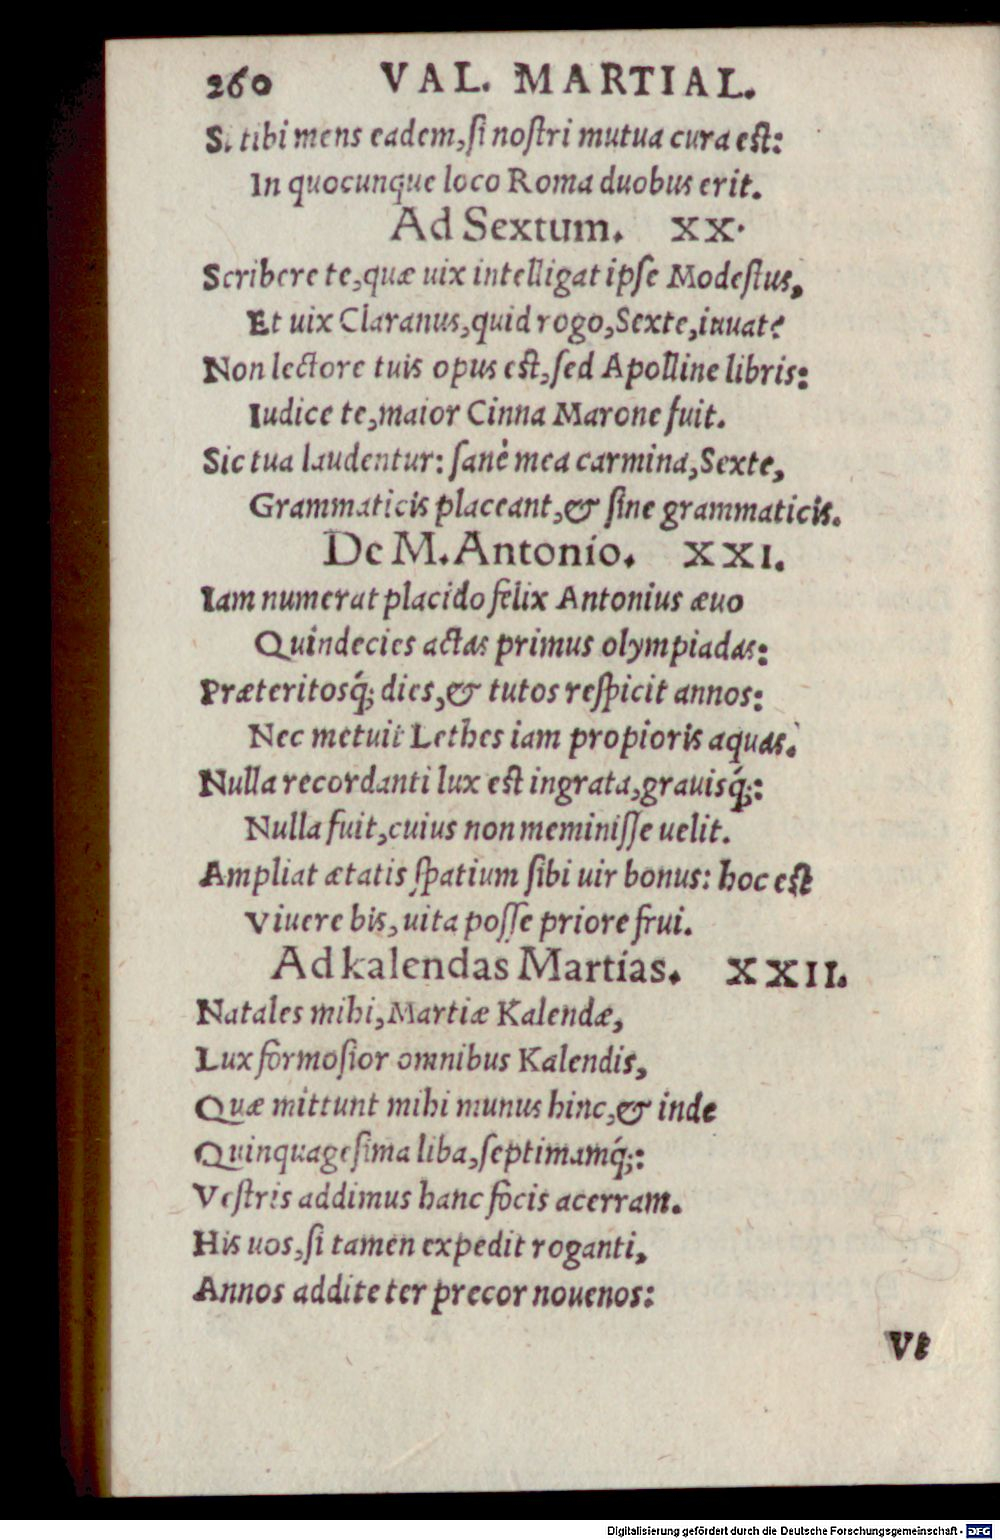 260 VAL. MARTIAL.
Si tibi mens eadem, si nostri mutua cura est:
In quocunque loco Roma duobus erit.
Ad Sextum. XX.
Scribere te, quæ uix intelligat ipse Modestus,
Et uix Claranus, quid rogo, Sexte, iuuat?
Non lectore tuis opus est, sed Apolline libris:
Iudice te, maior Cinna Marone fuit.
Sic tua laudentur: sanè mea carmina, Sexte,
Grammaticis placeant, & sine grammaticis.
De M. Antonio. XXI.
Iam numerat placido felix Antonius æuo
Quindecies actas primus olympiadas:
Præteritosq́; dies, & tutos respicit annos:
Nec metuit Lethes iam propioris aquas.
Nulla recordanti lux est ingrata, grauisq́;:
Nulla fuit, cuius non meminisse uelit.
Ampliat ætatis spatium sibi uir bonus: hoc est
Viuere bis, uita posse priore frui.
Ad kalendas Martias. XXII.
Natales mihi, Martiæ Kalendæ,
Lux formosior omnibus Kalendis,
Quæ mittunt mihi munus hinc, & inde
Quinquagesima liba, septimamq́;:
Vestris addimus hanc focis acerram.
His uos, si tamen expedit roganti,
Annos addite ter precor nouenos:
Vt
Digitalisierung gefördert durch die Deutsche Forschungsgemeinschaft - DFG